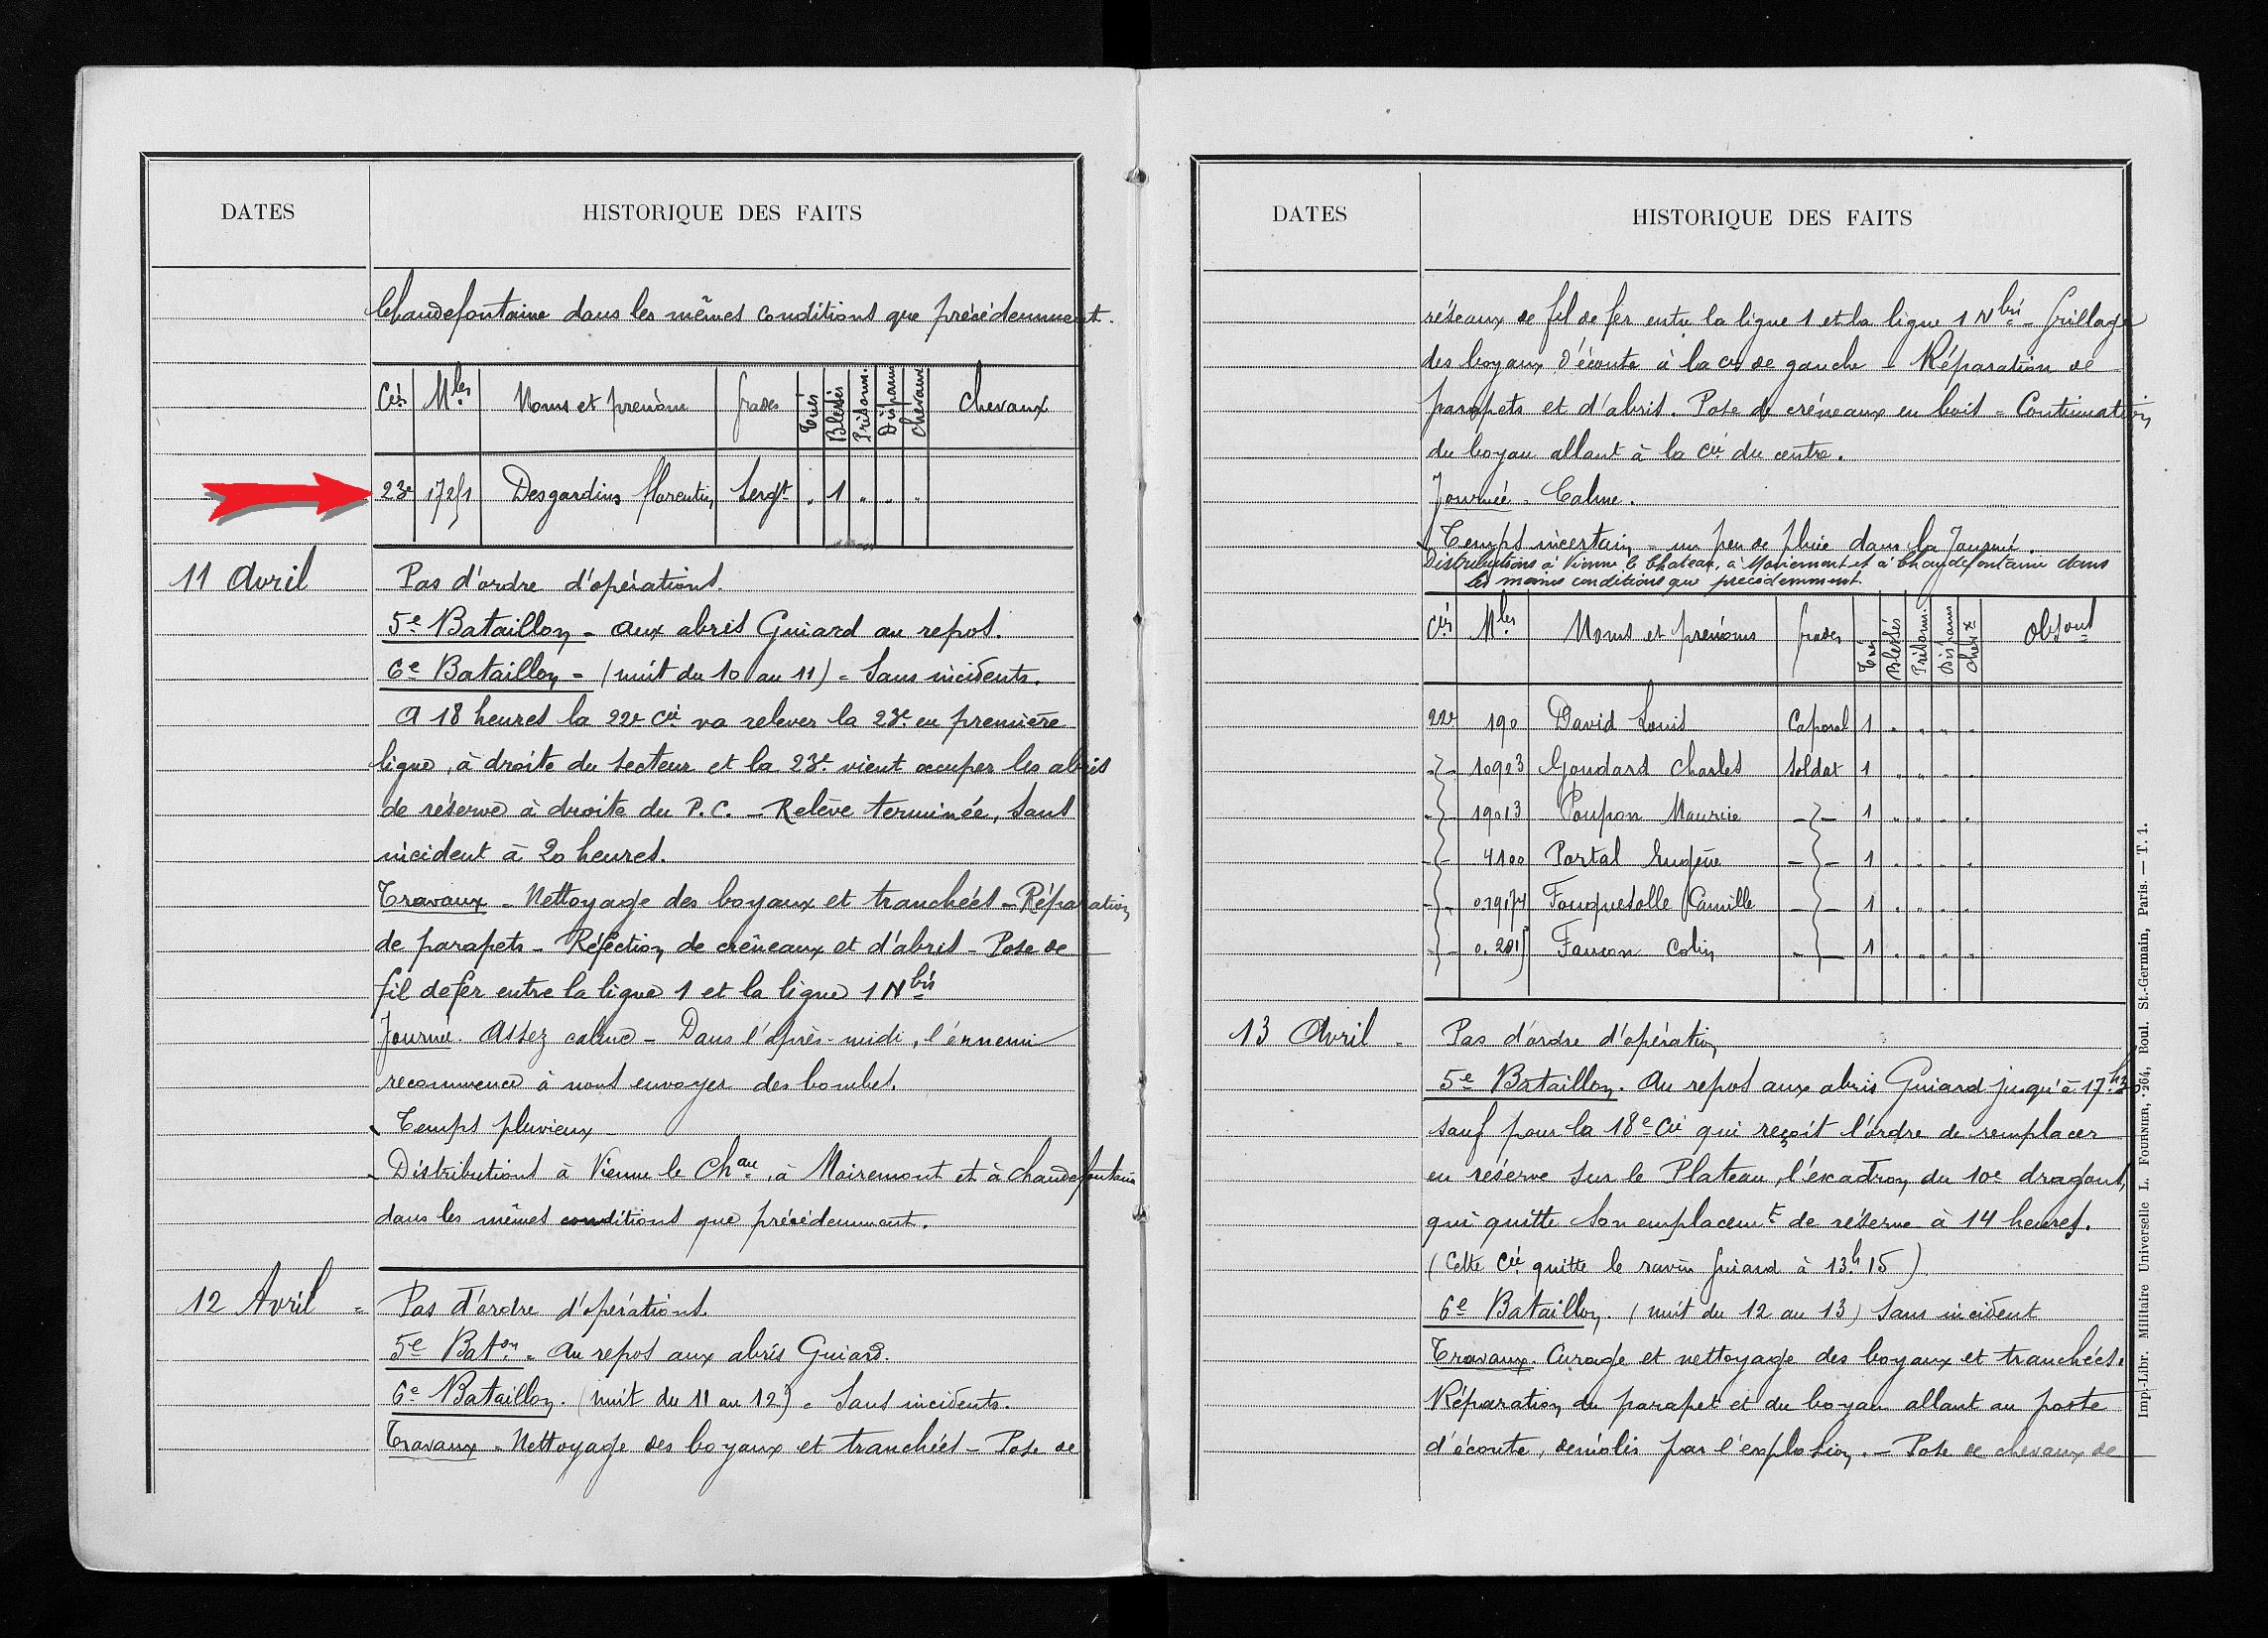 DATES
HISTORIQUE DES FAITS
Chaudefontaine dans les mêmes conditions que précédemment.
Cies Mles Noms et prénoms grades Tués Blessés Prisonn. Disparus Chevaux Chevaux
23e 17251 Desgardins Florentin Sergt " 1 " " "
11 Avril
Pas d'ordre d'opérations.
5e Bataillon - aux abris Guiard au repos.
6e Bataillon - (nuit du 10 au 11) - Sans incidents.
A 18 heures la 22e Cie va relever la 23e en première
ligne, à droite du secteur et la 23e vient occuper les abris
de réserve à droite du P.C. - Relève terminée, sans
incident à 20 heures.
Travaux - Nettoyage des boyaux et tranchées - Réparation
de parapets - Réfection de créneaux et d'abris - Pose de
fil de fer entre la ligne 1 et la ligne 1 N bis
Journée. Assez calme - Dans l'après-midi, l'ennemi
recommence à nous envoyer des bombes.
Temps pluvieux
Distributions à Vienne le Chau, à Moiremont et à Chaudefontaine
dans les mêmes conditions que précédemment.
12 Avril -
Pas d'ordre d'opérations
5e Baton - Au repos aux abris Guiard.
6e Bataillon. (nuit du 11 au 12) - Sans incidents.
Travaux - Nettoyage des boyaux et tranchées - Pose de
DATES
HISTORIQUE DES FAITS
réseaux de fil de fer entre la ligne 1 et la ligne 1 N bis - Grillage
des boyaux d'écoute à la Cie de gauche - Réparation de
parapets et d'abris. Pose de créneaux en bois - Continuation
du boyau allant à la Cie du centre.
Journée - Calme.
Temps incertain - un peu de pluie dans la Journée.
Distributions à Vienne le Chateau, à Moiremont et à Chaudefontaine dans
les mêmes conditions que précédemment
Cies Mles Noms et prénoms grades Tués Blessés Prisonn. Disparus Chevx Obsons
22e 190 David Louis Caporal 1 " " " "
-"- 10903 Goudard Charles Soldat 1 " " " "
-"- 19013 Poupon Maurice -"- 1 " " " "
-"- 4100 Portal Eugène -"- 1 " " " "
-"- Fouquesolle Camille -"- 1 " " " "
-"- Faucon Colin -"- 1 " " " "
13 Avril -
Pas d'ordre d'opération
5e Bataillon. Au repos aux abris Guiard jusqu'à 17h
sauf pour la 18e Cie qui reçoit l'ordre de remplacer
en réserve sur le Plateau, l'escadron du 10e dragons,
qui quitte son emplacemt de réserve à 14 heures.
(Cette Cie quitte le ravin Guiard à 13h15)
6e Bataillon. (nuit du 12 au 13) Sans incident
Travaux. Curage et nettoyage des boyaux et tranchées.
Réparation du parapet et du boyau allant au poste
d'écoute, démolis par l'explosion. - Pose de chevaux de
Imp.-Libr. Militaire Universelle L. FOURNIER, 264, Boul. St.-Germain, Paris. — T. 1.